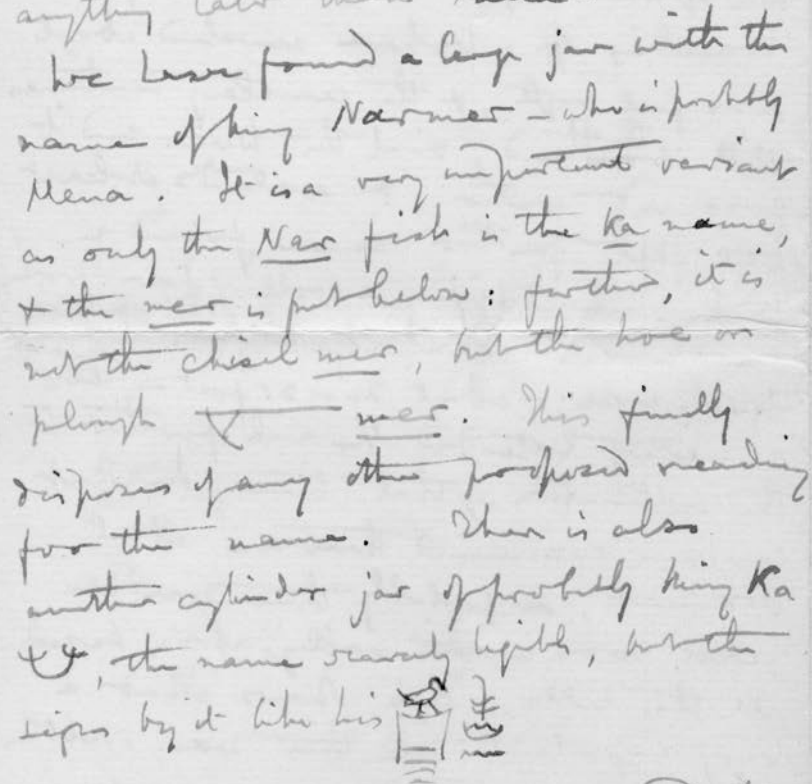 anything
We have found a large jar with the
name of king Narmer - who is probably
Mena. It is a very important variant
as only the Nar fish is in the Ka name,
& the mer is put below: further, it is
not the chisel mer, but the hoe or
plough mer. This finally
disposes of any other proposed reading
for the name. There is also
another cylinder jar of probably King Ka
, the name scarcely legible, but the
signs by it like his